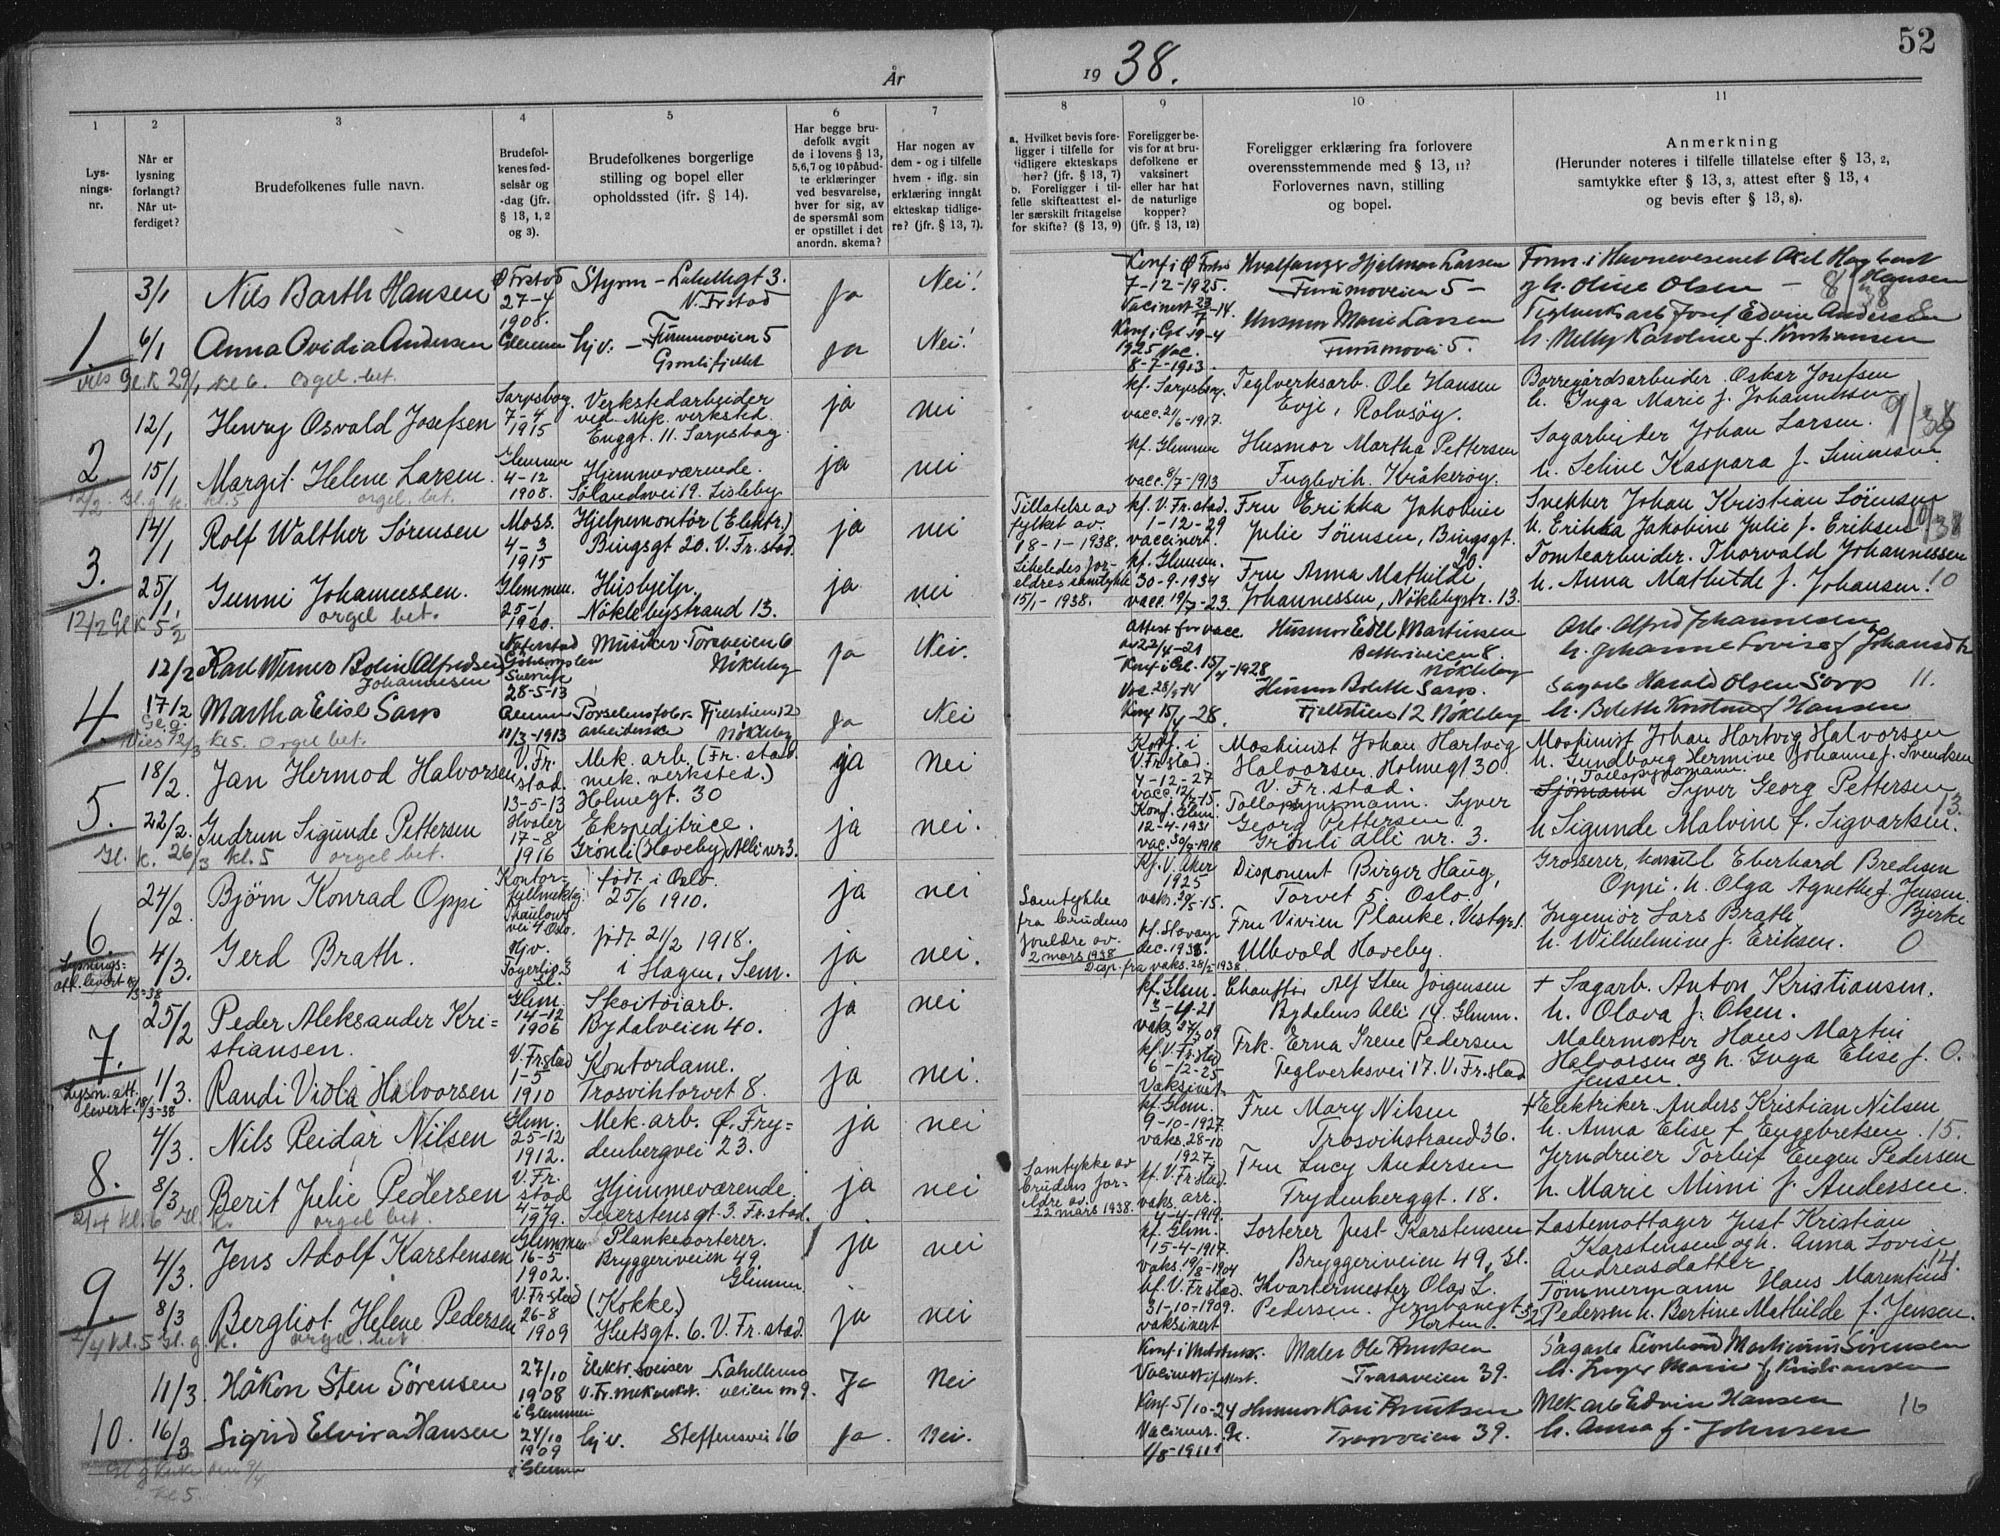 52
År
19 38.
1
2
3
4
5
6
7
8
9
10
11
Lys-
nings-
nr.
Når er
lysning
forlangt?
Når ut-
ferdiget?
Brudefolkenes fulle navn.
Brudefol-
kenes fød-
selsår og
-dag (jfr.
§ 13, 1, 2
og 3).
Brudefolkenes borgerlige
stilling og bopel eller
opholdssted (ifr. § 14).
Har begge bru-
defolk avgit
de i lovens § 13,
5,6,7 og 10 påbud-
te erklæringer
ved besvarelse,
hver for sig, av
de spørsmål som
er opstillet i det
anordn. skema?
Har nogen av
dem - og i tilfelle
hvem - iflg. sin
erklæring inngått
ekteskap tidlige-
re? (jfr. § 13, 7).
a. Hvilket bevis fore-
ligger i tilfelle for
tidligere ekteskaps
hør? (jfr. § 13, 7)
b. Foreligger i til-
felle skifteattest el-
ler særskilt fritagelse
for skifte? (§ 13, 9)
Foreligger be-
vis for at bru-
defolkene er
vaksinert
eller har hat
de naturlige
kopper?
(jfr. § 13, 12)
Foreligger erklæring fra forlovere
overensstemmende med § 13, 11?
Forlovernes navn, stilling
og bopel.
Anmerkning
(Herunder noteres i tilfelle tillatelse efter § 13, 2,
samtykke efter § 13, 3, attest efter § 13, 4
og bevis efter § 13, 8).
1.
3/1
Nils Barth Hansen
Ø Frstad
27-4
1908.
Styrm - Lahellegt 3.
V. Frstad
ja
Nei!
Konf i Ø Frstad
7-12-1925.
Hvalfanger Hjelmar Larsen
Furumoveien 5 -
Form. i Havnevesenet Axel Hagbart
Hansen
og h. Oline Olsen - 8/38
6/1
Anna Ovidia Andersen
Glemmen
hjv. - Furumoveien 5
ja
Nei!
1925 Vac.
8-7-1913
Husmor Marie Larsen
Furumovei 5.
Teglverksarb Josef Edvin Andersen 8
h. Nelly Karoline f. Kristiansen
Vies Gl. K 29/1 kl 6. Orgel. bet.
2.
12/1
Henry Osvald Josefsen
Sarpsborg.
7-4
1915
Verkstedarbeider
ved Mek. verksted.
Enggt. 11. Sarpsborg.
ja
nei
kf. Sarpsborg.
vacc. 21/6-1917.
Teglverksarb. Ole Hansen
Evje, Rolvsøy.
Borregårdsarbeider Oskar Josefsen
h. Inga Marie f. Johannessen
9/38
15/1
Margit Helene Larsen
Glemmen
4-12
1908.
Hjemmeværende.
Sølandsvei 19. Lisleby.
ja
nei
kf. Glemmen
vacc. 9/7-1913
Husmor Martha Pettersen
Fuglevik. Kråkerøy.
Sagarbeider Johan Larsen.
h. Seline Kaspara f. Simensen
12/2 Gl. g. k. kl. 5 orgel. bet.
3.
14/1
Rolf Walther Sørensen
Moss.
4-3
1915
Hjelpemontør (Elektr.)
Bingsgt 20. V. Fr. stad.
ja
nei
Tillatelse av
fylket av
18-1-1938.
kf. V. Fr. stad.
1-12-29
vaccinert.
Fru Erikka Jakobine
Julie Sørensen, Bingsgt.
20.
Snekker Johan Kristian Sørensen
h. Erikka Jakobine Julie f. Eriksen 10/38
25/1
Gunni Johannessen.
orgel bet.
Glemmen.
25-1
1920.
Hushjelp.
Nøklebystrand 13.
ja
nei
Likeledes for-
eldres samtykke
15/1-1938.
kf. Glemm.
30-9-1934
vacc. 19/7-23.
Fru Anna Mathilde
Johannessen, Nøklebystr. 13.
Tomtearbeider. Thorvald Johannessen
h. Anna Mathilde f. Johansen. 10
12/2 Gl K 5 1/2
4.
12/2
Karl Werner Bolin (Alfredsen)
Johannesen
Sverige
28-5-13
Musiker Torsveien 6
Nøkleby
ja
Nei.
Attest for vacc.
av 22/4-21
Konf i Gl. 15/4-1928
Husmor Edle Martinsen
Batteriveien 8.
Nøkleby
Arb. Alfred Johannesen
h. Johanne Lovise f. Johansdtr
17/2
Martha Elise Sarp
Glemm
11/3-1913
Porselensfabr- Fjellstien 12
arbeiderske Nøkleby
ja
Nei
Konf 15/4-28.
Husmor Bolette Sarp.
Fjellstien 12 Nøkleby
Sagarb Harald Olsen Sarp 11.
h. Bolette Kristine f Hansen
Gl. g.
Vies 12/3 kl 5. Orgel bet.
5.
18/2.
Jan Hermod Halvorsen
V. Fr.
stad.
13-5-13
Mek. arb. (Fr. stad
mek. verksted.)
Holmegt. 30
ja
nei
Konf. i
V. Frstad.
4-12-27
vacc. 12/7-15.
Maskinist Johan Hartvig
Halvorsen. Holmegt 30.
V. Fr. stad.
Maskinist Johan Hartvig Halvorsen
h. Gundborg Hermine Johanne f. Svendsen
22/2.
Gudrun Sigunde Pettersen
Hvaler
17-8
1916
Ekspeditrice.
Grønli (Haveby) Alli nr 3.
ja
nei.
Konf. Glem.
12-4-1931
vac. 30/7-1918
Tollopsynsmann. Syver
Georg Pettersen
Grønli alli nr. 3.
Tollopsynsmann
Sjømann Syver Georg Pettersen 13.
h. Sigunde Malvine f. Sigvartsen.
Gl. K. 26/3 kl. 5 orgel bet.
6.
24/2.
Bjørn Konrad Oppi
Kontor-
fullmektig
Thaulows
vei 4 Oslo.
født i Oslo.
25/6 1910.
ja
nei
kf. V. Aker
1925
vaks. 30/5-15.
Disponent Birger Haug,
Torvet 5. Oslo.
Grosserer, konsul Eberhard Bredesen
Oppi. h. Olga Agnethe f. Jensen.
Bjerke
4/3.
Gerd Brath.
Hjv.
født 21/2 1918.
i Hagen, Sem.
ja
nei.
Samtykke
fra brudens
foreldre av
2 mars 1938
Disp. fra vaks. 28/2 1938.
Fru Vivien Planke. Vestgt. 1.
Ullevold Haveby.
Ingeniør Lars Brath
h. Wilhelmine f. Eriksen. 0
Lysnings-
att. levert
7.
25/2
Peder Aleksander Kri-
stiansen.
Glem.
14-12
1906
Skotøiarb.
Bydalveien 40.
ja
nei
kf. Glem.
vaks 27/7 09
Chauffør Alf Sten Jørgensen
Bydalens Alli 14. Glemm.
+ Sagarb. Anton Kristiansen.
h. Olava f. Olsen.
1/3.
Randi Viola Halvorsen
V. Fr.stad
1-5
1910
Kontordame.
Trosviktorvet 8.
ja
nei.
kf. V. Fr. stad
6-12-25
Vaksinert
Frk. Erna Irene Pedersen
Teglverksvei 17. V. Fr. stad
Malermester Hans Martin
Halvorsen og h. Inga Elise f. 0.
Jensen.
Lysn. att.
levert 18/3-38
8.
4/3.
Nils Reidar Nilsen
Glem.
25-12
1912.
Mek. arb. Ø. Fry-
denbergvei 23.
ja
nei
kf. Glem.
9-10-1927.
vaks. 28-10
1927.
Fru Mary Nilsen
Trosvikstrand 36.
+ Elektriker Anders Kristian Nilsen
h. Anna Elise f Engebretsen. 15.
8/3
Berit Julie Pedersen
V. Fr.
stad
4-4
1919.
Hjemmeværende.
Seierstensgt 3. Fr. stad.
ja
nei
Samtykke av
brudens for-
eldre av
22 mars 1938.
kf. V. Fr. stad.
vaks. arr.
4-4-1919.
Fru Lucy Andersen
Frydenberggt. 18.
Jerndreier Torleif Eugen Pedersen
h. Marie Mimi f. Andersen.
2/4 kl. 6 Gl. K. orgel bet.
9.
4/3.
Jens Adolf Karstensen
Glemmen
16-5
1902.
Plankesorterer.
Bryggeriveien 49
Glemmen
ja
nei
kf. Glem.
15-4-1917.
vaks. 19/8-1904
Sorterer Just Karstensen
Bryggeriveien 49, Gl.
Lastemottager Just Kristian
Karstensen og h. Anna Lovise
Andreasdatter 14.
8/3
Bergliot Helene Pedersen
V. Fr stad
26-8
1909
(Kokke)
Hutsgt. 6. V. Fr. stad.
ja
nei
kf. V. Fr stad.
31-10-1909.
vaksinert
Kvartermester Olav L.
Pedersen. Jernbanegt 52
Horten.
Tømmermann Hans Marentius
Pedersen h. Bertine Mathilde f. Jensen.
2/4 kl. 5 Gl. g. K. orgel. bet
10.
11/3.
Håkon Sten Sørensen
27/10
1908
i Glemmen
Elektr. sveiser Lahellens
V. Fr. mek verkst. veien nr 9.
ja
Nei
Maler Ole Knutsen
Traraveien 39.
h. Inger Marie f. Kristiansen
16/3
Sigrid Elvira Hansen
24/10
1909
i Glemm
hjv. Steffensvei 16
ja.
Nei.
Konf. 5/10-24
Husmor Kari Knutsen
Traraveien 39.
Mek arb Edvin Hansen 16
h. Anna f. Johnsen
kl 5.